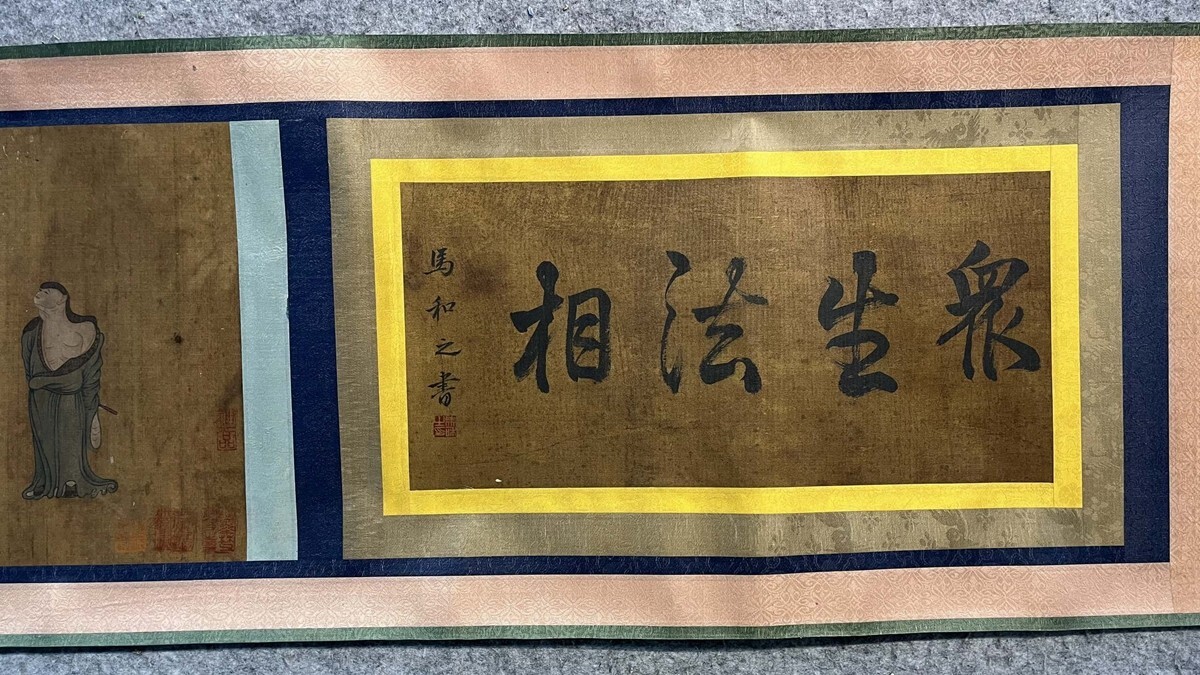 眾生法相
馬和之書